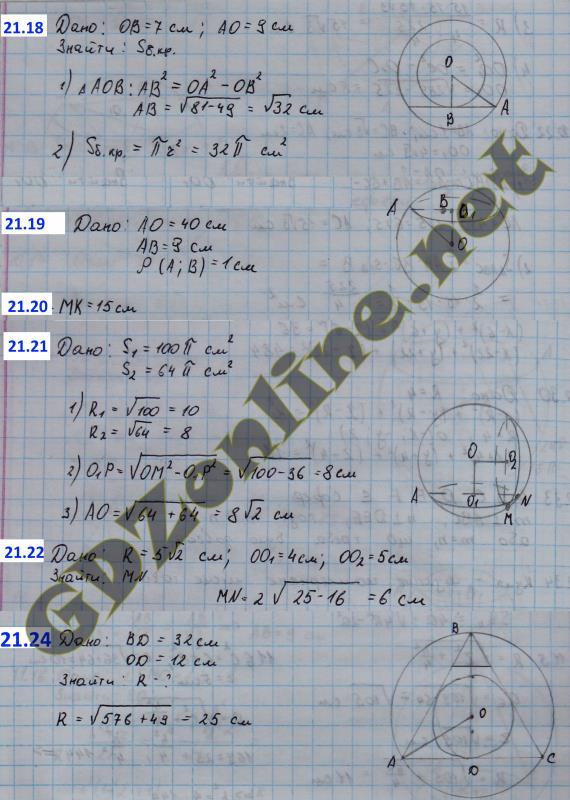 21.18 Дано: OB=7 см; AO=9 см
Знайти: Sб.кр.
1) △AOB: AB² = OA² - OB²
AB = √81-49 = √32 см
2) Sб.кр. = πr² = 32π см²
O
B
A
21.19 Дано: AO=40 см
AB=9 см
ρ(A; B)=1 см
A
B
O₁
O
21.20 MK=15 см
21.21 Дано: S₁=100π см²
S₂=64π см²
1) R₁=√100=10
R₂=√64=8
2) O₁P=√OM²-O₁P²=√100-36=8см
3) AO=√64+64=8√2 см
O
O₂
A
O₁
N
M
21.22 Дано: R=5√2 см; OO₁=4см; OO₂=5см
Знайти: MN
MN=2√25-16=6 см
21.24 Дано: BD=32см
OD=12 см
Знайти: R-?
R=√576+49=25 см
B
O
A
D
C
GDZonline.net